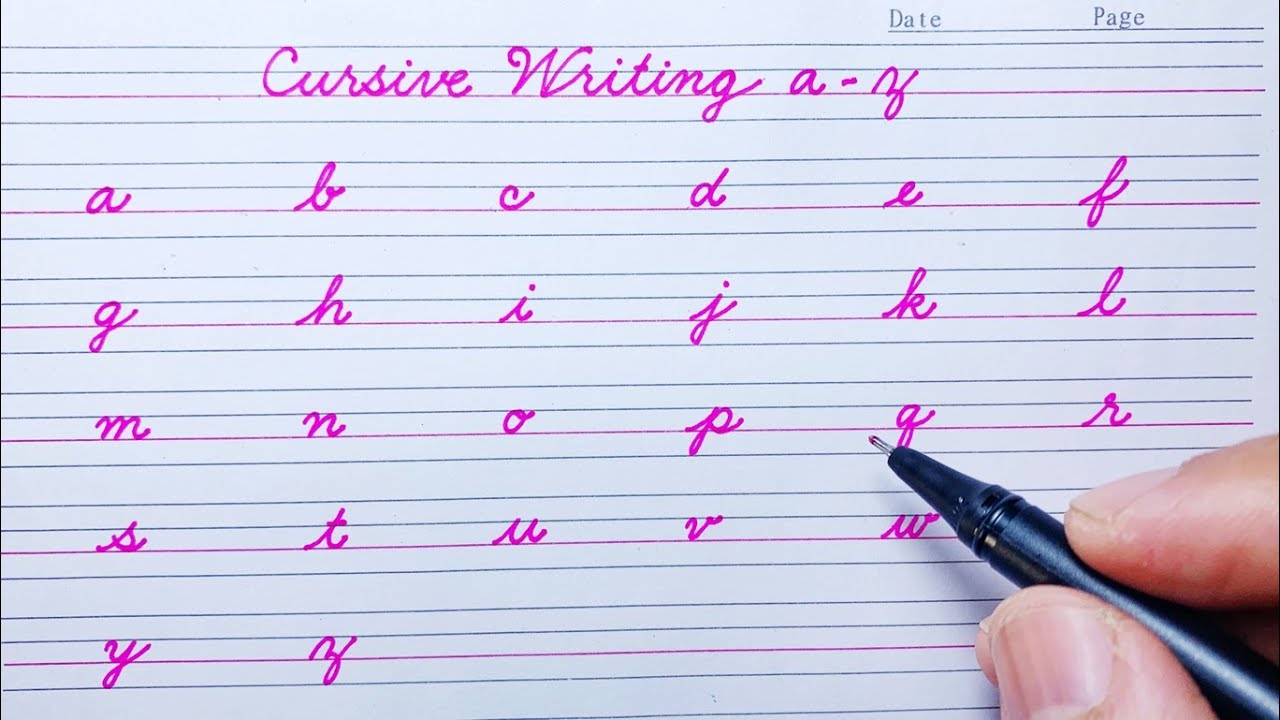 Date Page
Cursive Writing a - z
a b c d e f
g h i j k l
m n o p q r
s t u v w
y z